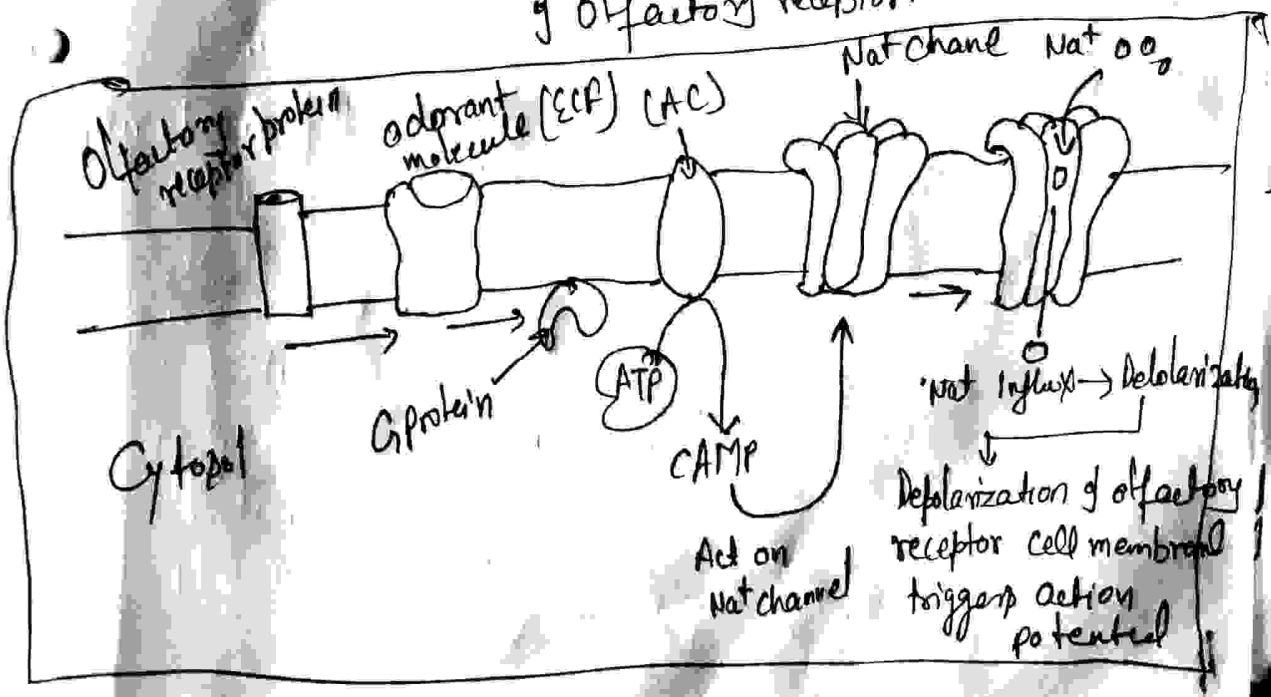 of Olfactory receptor
Olfactory
receptor protein
odorant
molecule (ECF)
(AC)
Na+ Chanel
Na+
G Protein
ATP
CAMP
Cytosol
Act on
Na+ channel
Na+ Influx → Depolarization
Depolarization of olfactory
receptor cell membrane
triggers action
potential